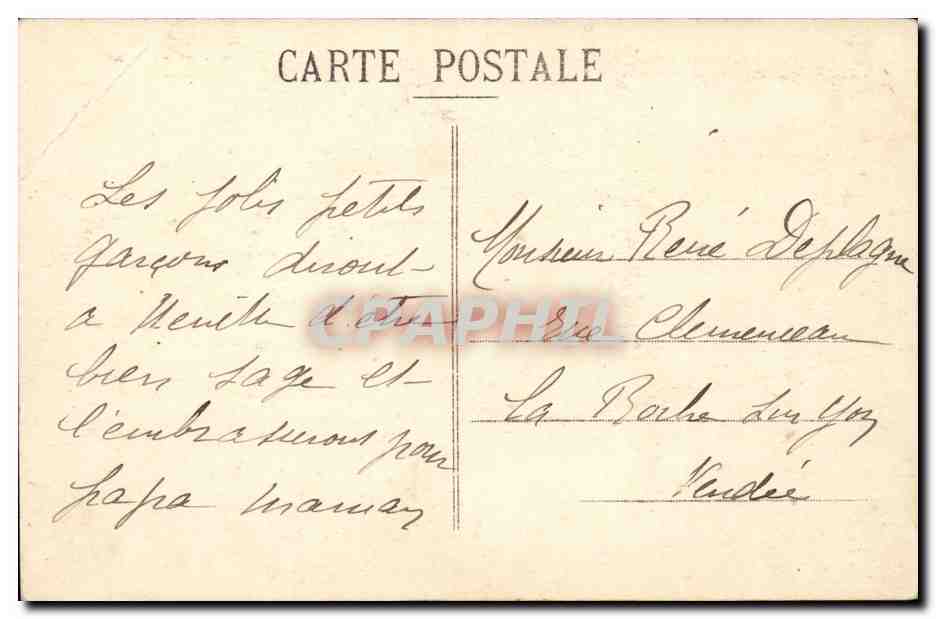 CARTE POSTALE
Les jolis petits
garçons diront
a d'être
bien sage et
l'embrasserons pour
papa maman
Monsieur René Deplagne
Rue Clemenceau
La Roche sur Yon
Vendée
CPAPHIL